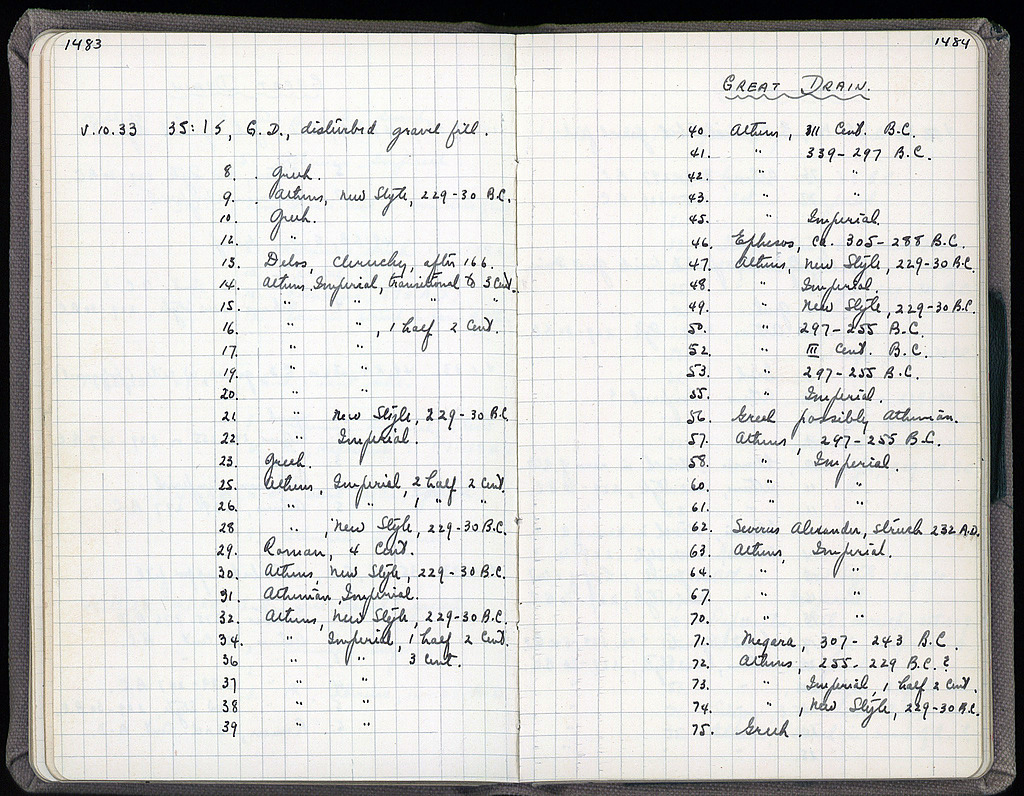 1483
V.10.33 35:15, G.D., disturbed gravel fill.
8. Greek.
9. Athens, New Style, 229-30 B.C.
10. Greek.
12. "
13. Delos, cleruchy, after 166.
14. Athens Imperial, transitional to 3 Cent.
15 " " " "
16. " ", 1 half 2 Cent.
17. " "
19. " "
20. " "
21 " New Style, 229-30 B.C.
22. " Imperial.
23. Greek.
25. Athens, Imperial, 2 half 2 Cent.
26. " " 1 " "
28 " , New Style, 229-30 B.C.
29. Roman, 4 Cent.
30. Athens, New Style, 229-30 B.C.
31. Athenian, Imperial.
32. Athens, New Style, 229-30 B.C.
34. " Imperial, 1 half 2 Cent.
36 " " 3 Cent.
37 " "
38 " "
39 " "
1484
GREAT DRAIN.
40. Athens, III Cent. B.C.
41. " 339-297 B.C.
42. " "
43. " "
45. " Imperial.
46. Ephesos, ca. 305-288 B.C.
47. Athens, New Style, 229-30 B.C.
48. " Imperial.
49. " New Style, 229-30 B.C.
50. " 297-255 B.C.
52. " III Cent. B.C.
53. " 297-255 B.C.
55. " Imperial.
56. Greek possibly Athenian.
57. Athens, 297-255 B.C.
58. " Imperial.
60. " "
61. " "
62. Severus Alexander, struck 232 A.D.
63. Athens, Imperial.
64. " "
67. " "
70. " "
71. Megara, 307-243 B.C.
72. Athens, 255-229 B.C.?
73. " Imperial, 1 half 2 Cent.
74. " , New Style, 229-30 B.C.
75. Greek.